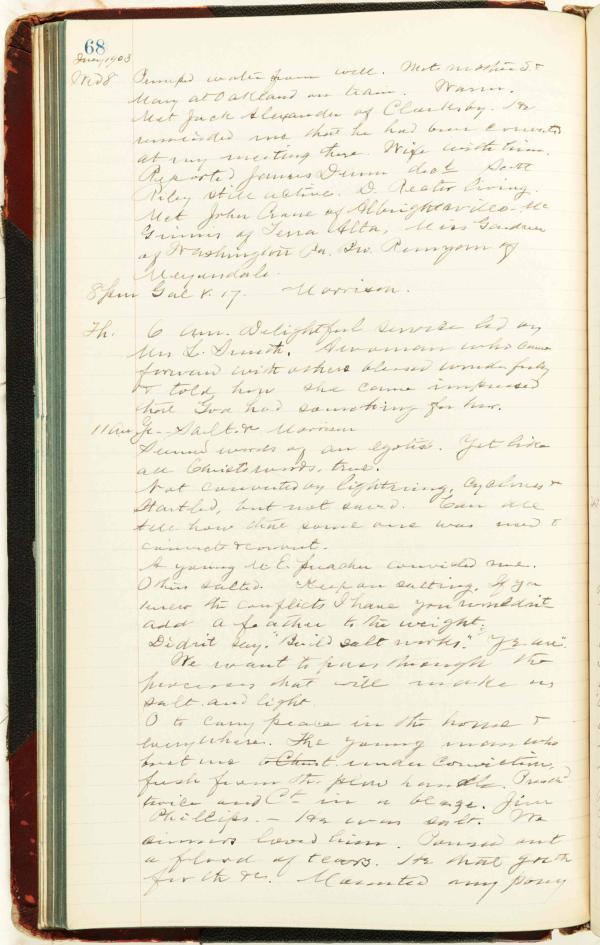 68
July, 1903
Wed 8 Pumped water from well. Met mother S. &
Mary at Oakland on train. Warm.
Met Jack Alexander of Clarksby. He
reminded me that he had been converted
at my meeting there. Wife with him.
Reported James Dunn dead. Scott
Riley still active. D. Rector living.
Met John Crane of Albrightsville. Mc
Ginnis of Terra Alta, Miss Gardner
of Washington Pa. Runyon of
Meyersdale.
8 pm Gal 5. 17. Morrison.
Th. 6 am. Delightful service led by
Mrs L. Smith. A woman who came
forward with others blessed wonderfully
& told how she came impressed
that God had something for her.
11 am Ye Salt & Morrison
Seems words of an egotist. Yet like
all Christs words, true.
Not converted by lightning, cyclones &
Startled, but not saved. Can all
tell how that some one was used to
convict & convert.
A young M. E. preacher convicted me.
O him salted. Keep on salting. If you
knew the conflicts I have you wouldn't
add a feather to the weight.
Didn't say, "Build salt works." "Ye are".
We want to pass through the
processes that will make us
salt and light.
O to carry peace in the home &
everywhere. The young man who
put me under conviction,
fresh from the plow handle. Preach'd
twice and Ch in a blaze. Jim
Phillips. - He was salt. We
sinners loved him. Poured out
a flood of tears. He that goeth
forth &c. Mounted my pony